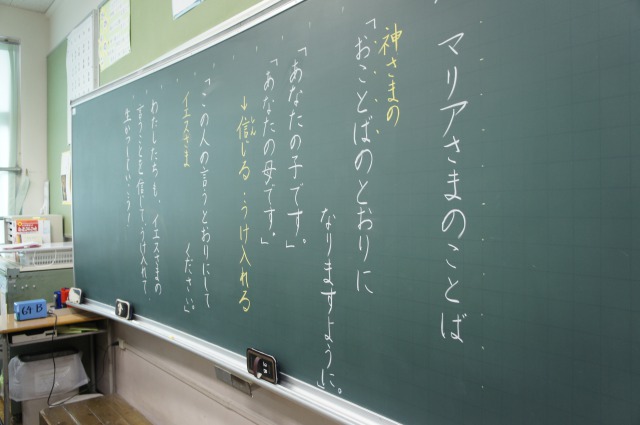 マリアさまのことば
神さまの
「おことばのとおりに
なりますように」。
「あなたの子です。」
「あなたの母です。」
→信じる・うけ入れる
「この人の言うとおりにして
ください」
イエスさま
わたしたちも、イエスさまの
言うことを信じて、うけ入れて
生かつしていこう！
64B